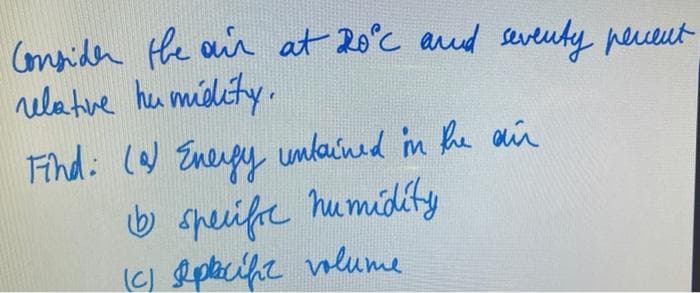 Consider the air at 20°C and seventy percent
relative humidity.
Find: (a) Energy contained in the air
(b) specific humidity
(c) specific volume